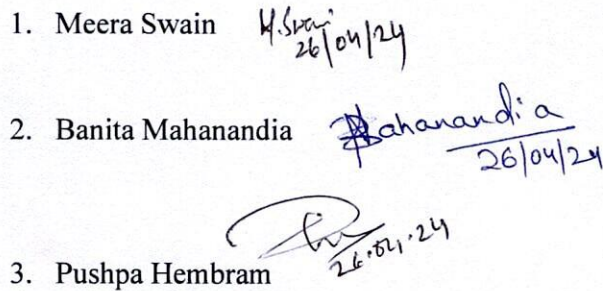 1. Meera Swain M.Swain 26/04/24
2. Banita Mahanandia BMahanandia 26/04/24
3. Pushpa Hembram 26.04.24